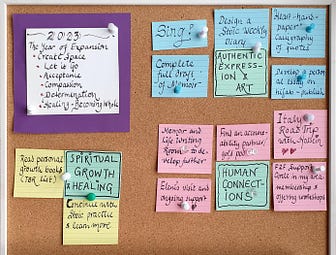 2023
The Year of Expansion
• Create Space
• Let it Go
• Acceptance
• Compassion
• Determination
• Healing - Becoming Whole
Sing?
Complete
full draft
of 'Memoir'
Design a
Stoic weekly
diary
AUTHENTIC
EXPRESS-
ION &
ART
Start hand-
paper
Calligraphy
of quotes
Develop
story on
publish
Memoir and
Life Writing
to de-
velop further
Find an account-
ability partner,
Italy
Road Trip
with
Read personal
growth books
(TBR list)
SPIRITUAL
GROWTH
& HEALING
Continue with
Stoic practice
& learn more
visit and
ongoing support
HUMAN
CONNECT-
IONS
F2F Support
in my area
membership &
offering workshops